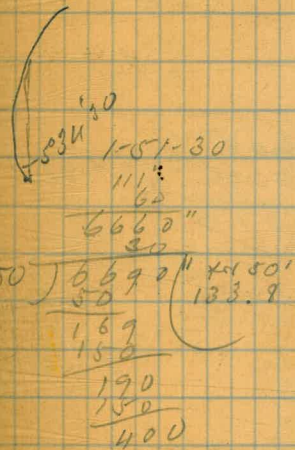 1-51-30
111"
60
6660"
30
50 ) 6690" ( 50'
50 133.9
169
150
190
150
400